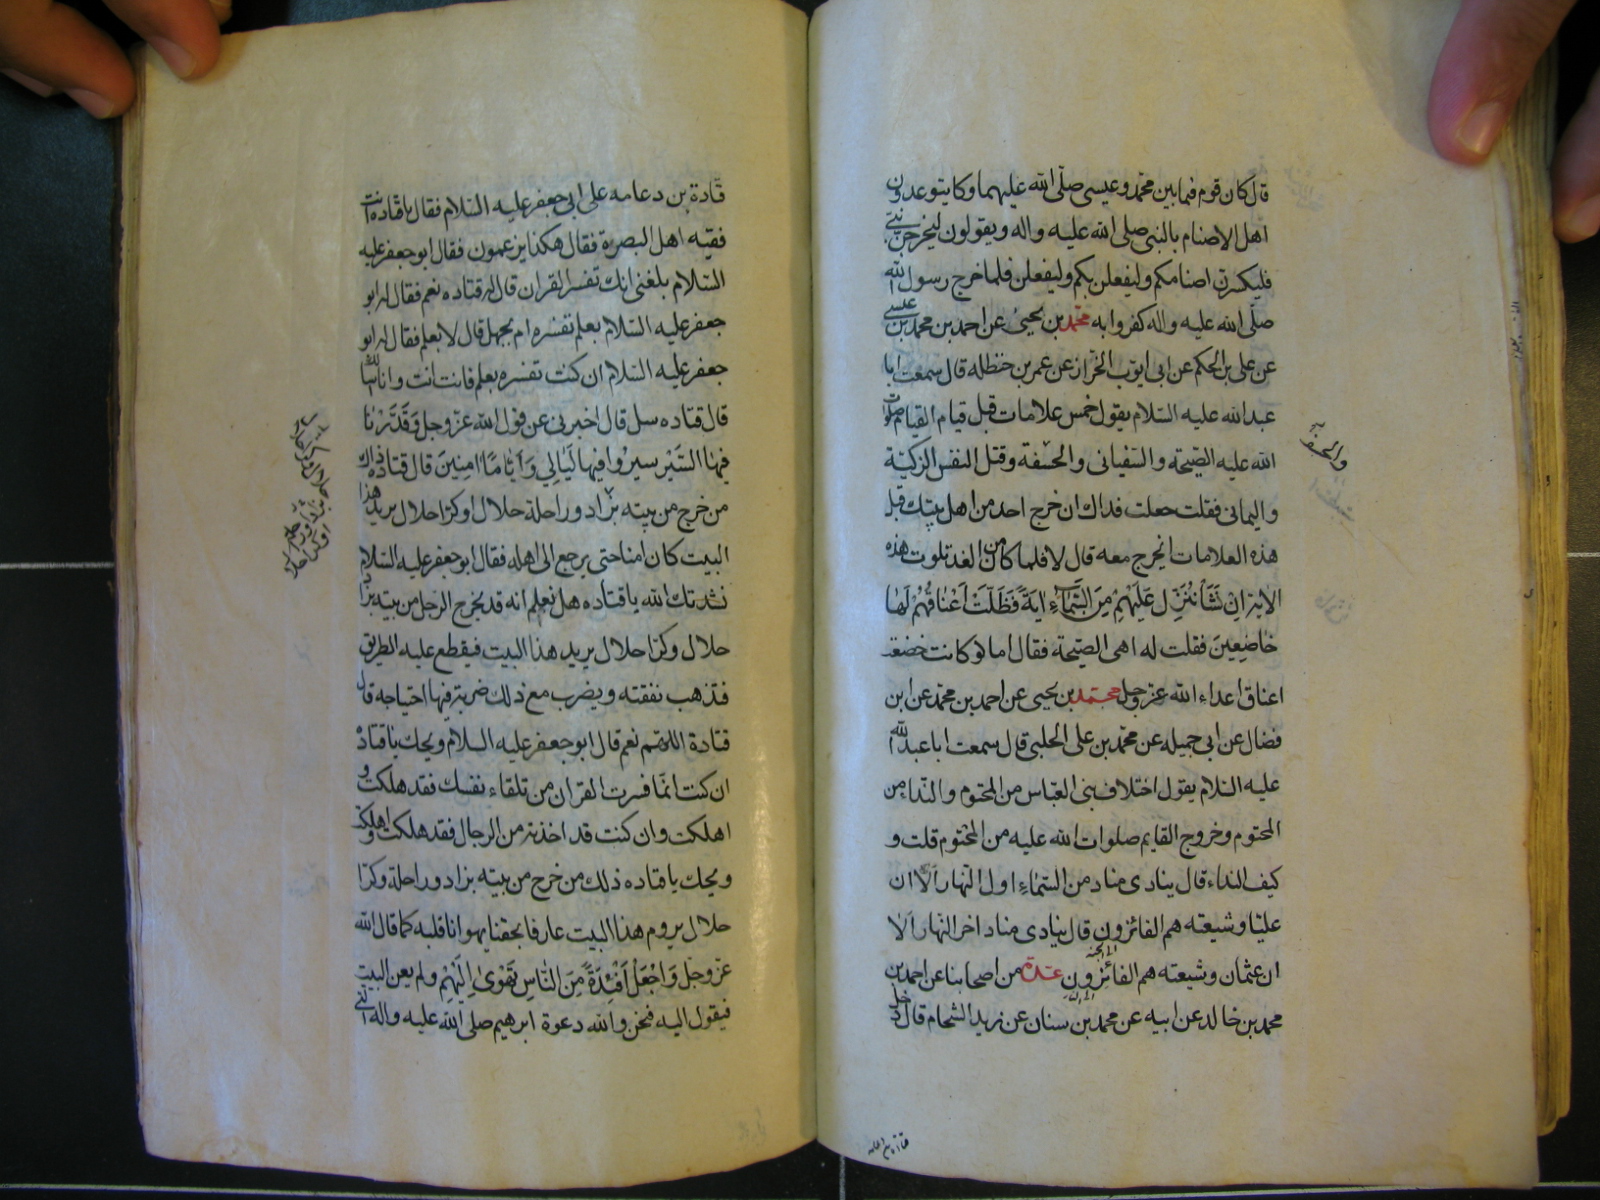 قال كان قوم فيما بين محمد وعيسى صلى الله عليهما وكا يتوعدون
اهل الاصنام بالنبى صلى الله عليه واله ويقولون ليخرجن نبى
فليكسرن اصنامكم وليفعلن بكم وليفعلن فلما خرج رسول الله
صلى الله عليه واله كفروا به محمد بن يحيى عن احمد بن محمد بن عيسى
عن على بن الحكم عن ابى ايوب الخزاز عن عمر بن حنظله قال سمعت ابا
عبد الله عليه السلام يقول خمس علامات قبل قيام القيام صلوات
الله عليه الصيحة والسفيانى والخسفة وقتل النفس الزكية
واليمانى فقلت جعلت فداك ان خرج احد من اهل بيتك قبل
هذه العلامات انخرج معه قال لا فلما كان من الغد تلوت هذه
الاية ان نَشَأْ نُنَزِّل عَلَيْهِمْ مِنَ السَّمَآءِ ايَةً فَظَلَّتْ اَعْنَاقُهُمْ لَهَا
خَاضِعِينَ فقلت له اهى الصيحة فقال اما لو كانت خضعت
اعناق اعداء الله عز وجل محمد بن يحيى عن احمد بن محمد عن ابن
فضال عن ابى جميله عن محمد بن على الحلبى قال سمعت ابا عبد الله
عليه السلام يقول اختلاف بنى العباس من المحتوم والندا من
المحتوم وخروج القايم صلوات الله عليه من المحتوم قلت و
كيف النداء قال ينادى مناد من السماء اول النهار الا ان
عليا وشيعته هم الفائزون قال ينادى مناد اخر النهار الا
ان عثمان وشيعته هم الفائزون عدة من اصحابنا عن احمد بن
محمد بن خالد عن ابيه عن محمد بن سنان عن زيد الشحام قال دخل
قتادة بن دعامه على ابى جعفر عليه السلام فقال يا قتاده انت
فقيه اهل البصرة فقال هكذا يزعمون فقال ابو جعفر عليه
السلام بلغنى انك تفسر القران قال له قتاده نعم فقال له ابو
جعفر عليه السلام بعلم تفسره ام بجهل قال لا بعلم فقال له ابو
جعفر عليه السلام ان كنت تفسره بعلم فانت انت وانا
قال قتاده سل قال اخبرنى عن قول الله عز وجل وَقَدَّرْنَا
فيهَا السَّيْرَ سيرُوا فيهَا لَيَالِي وَاَيَّامًا امِنينَ قال قتاده ذاك
من خرج من بيته بزاد وراحلة حلال وكرا حلال يريد هذا
البيت كان امنا حتى يرجع الى اهله فقال ابو جعفر عليه السلام
نشدتك الله يا قتاده هل تعلم انه قد يخرج الرجل من بيته بزاد
حلال وكرا حلال يريد هذا البيت فيقطع عليه الطريق
فتذهب نفقته ويضرب مع ذلك ضربة فيها اجتياحه قال
قتادة اللهم نعم قال ابو جعفر عليه السلام ويحك يا قتادة
ان كنت انما فسرت القران من تلقاء نفسك فقد هلكت و
اهلكت وان كنت قد اخذته من الرجال فقد هلكت واهلكت
ويحك يا قتاده ذلك من خرج من بيته بزاد وراحلة وكرا
حلال يروم هذا البيت عارفا بحقنا يهوانا قلبه كما قال الله
عز وجل وَاجْعَلْ اَفْئِدَةً مِنَ النَّاسِ تَهْوى اِلَيْهِمْ ولم يعن البيت
فيقول اليه فنحن والله دعوة ابرهيم صلى الله عليه واله التى